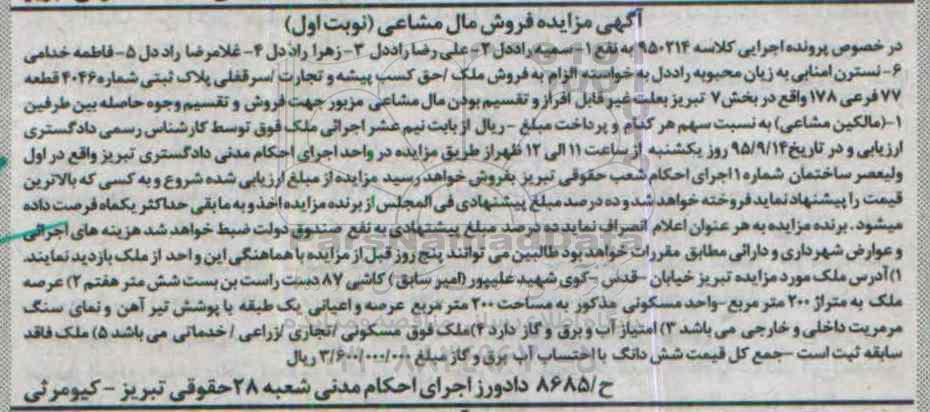 آگهی مزایده فروش مال مشاعی (نوبت اول)
در خصوص پرونده اجرایی کلاسه ۹۵۰۲۱۴ به نفع ۱- سمیه راددل ۲- علی رضا راددل ۳- زهرا راددل ۴- غلامرضا راد دل ۵- فاطمه خدامی
۶- نسترن امنابی به زیان محبوبه راددل به خواسته الزام به فروش ملک /حق کسب پیشه و تجارت /سرقفلی پلاک ثبتی شماره ۴۰۴۶ قطعه
۷۷ فرعی ۱۷۸ واقع در بخش ۷ تبریز بعلت غیر قابل افراز و تقسیم بودن مال مشاعی مزبور جهت فروش و تقسیم وجوه حاصله بین طرفین
۱-(مالکین مشاعی) به نسبت سهم هر کدام و پرداخت مبلغ - ریال از بابت نیم عشر اجرائی ملک فوق توسط کارشناس رسمی دادگستری
ارزیابی و در تاریخ ۹۵/۹/۱۴ روز یکشنبه از ساعت ۱۱ الی ۱۲ ظهر از طریق مزایده در واحد اجرای احکام مدنی دادگستری تبریز واقع در اول
ولیعصر ساختمان شماره ۱ اجرای احکام شعب حقوقی تبریز بفروش خواهد رسید مزایده از مبلغ ارزیابی شده شروع و به کسی که بالاترین
قیمت را پیشنهاد نماید فروخته خواهد شد و ده درصد مبلغ پیشنهادی فی المجلس از برنده مزایده اخذ و به مابقی حداکثر یکماه فرصت داده
میشود. برنده مزایده به هر عنوان اعلام انصراف نماید ده درصد مبلغ پیشنهادی به نفع صندوق دولت ضبط خواهد شد هزینه های اجرائی
و عوارض شهرداری و دارائی مطابق مقررات خواهد بود طالبین می توانند پنج روز قبل از مزایده با هماهنگی این واحد از ملک بازدید نمایند.
۱) آدرس ملک مورد مزایده تبریز خیابان -قدس -کوی شهید علیپور (امیر سابق) کاشی ۸۷ دست راست بن بست شش متر هفتم ۲) عرصه
ملک به متراژ ۲۰۰ متر مربع-واحد مسکونی مذکور به مساحت ۲۰۰ متر مربع عرصه و اعیانی یک طبقه با پوشش تیر آهن و نمای سنگ
مرمریت داخلی و خارجی می باشد ۳) امتیاز آب و برق و گاز دارد ۴)ملک فوق مسکونی /تجاری /زراعی / خدماتی می باشد ۵) ملک فاقد
سابقه ثبت است -جمع کل قیمت شش دانگ با احتساب آب برق و گاز مبلغ ۳/۶۰۰/۰۰۰/۰۰۰ ریال
ح/۸۶۸۵ دادورز اجرای احکام مدنی شعبه ۲۸ حقوقی تبریز - کیومرثی